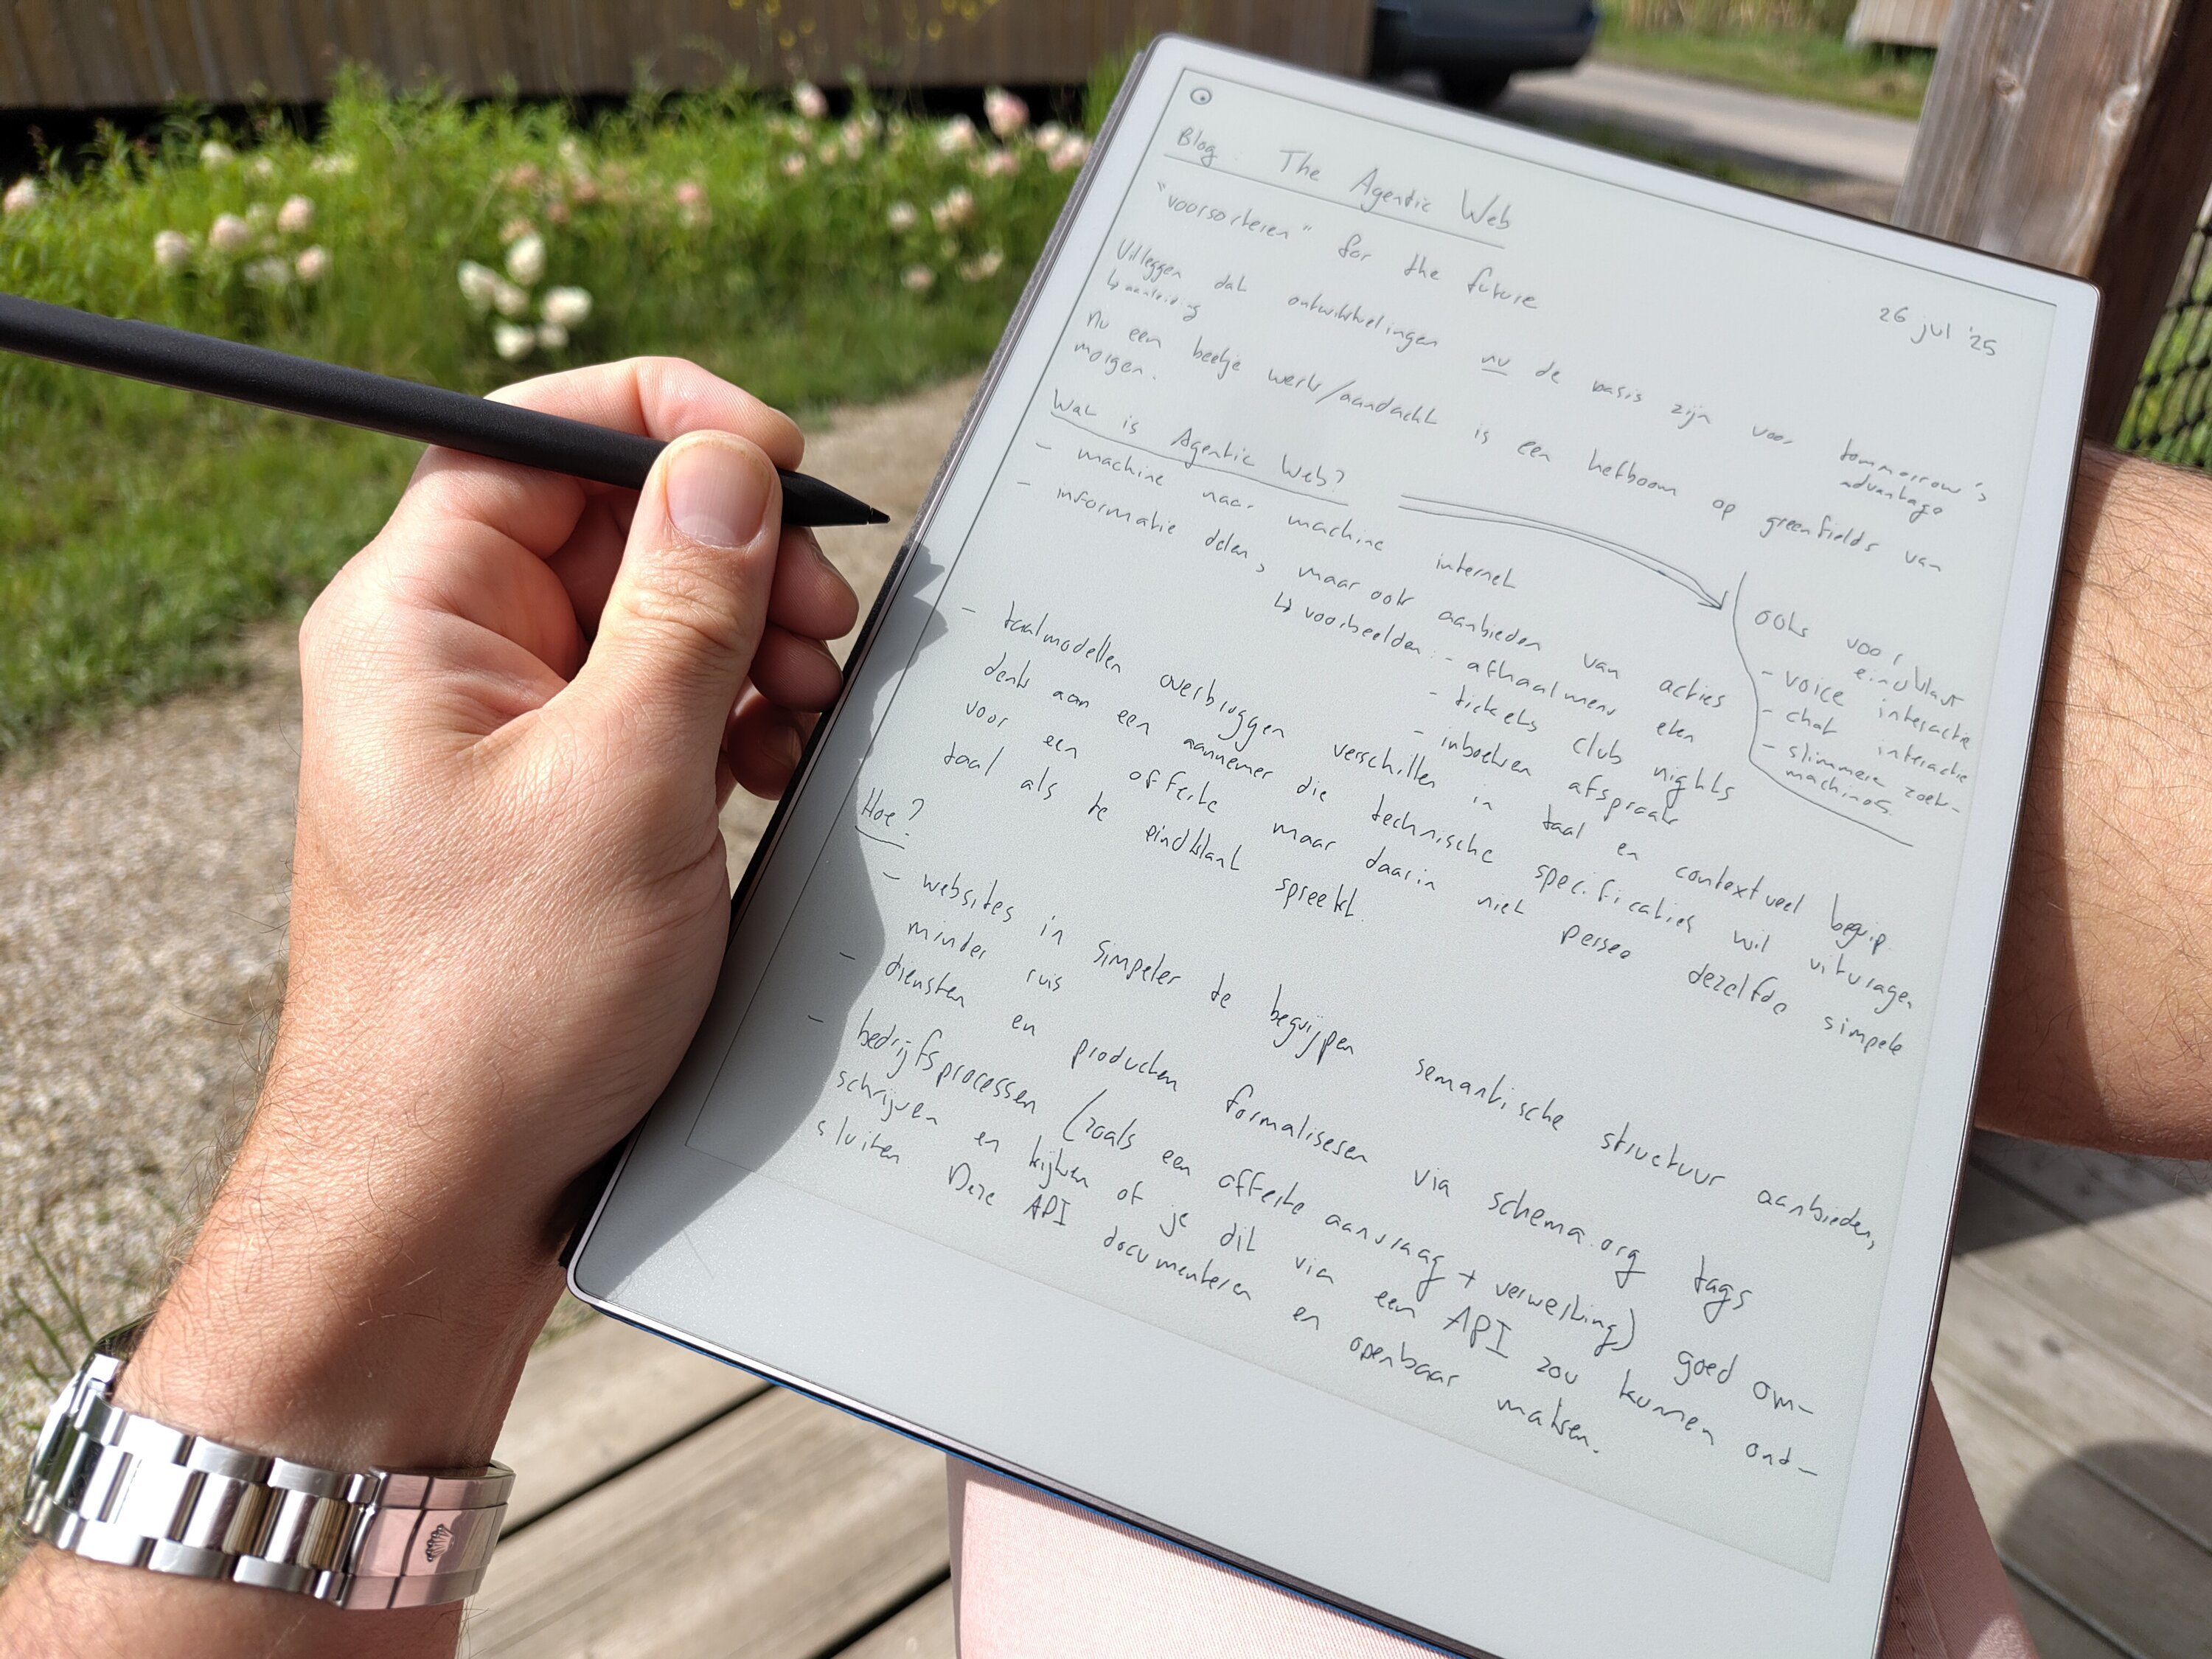 Blog. The Agentic Web
"voorsorteren" for the future
26 jul '25
Uitleggen dat ontwikkelingen nu de basis zijn voor tommorrow's advantage
↳ aanleiding
Nu een beetje werk/aandacht is een hefboom op greenfields van
morgen.
Wat is Agentic Web?
- machine naar machine internet
- informatie delen, maar ook aanbieden van acties
↳ voorbeelden: - afhaalmenu eten
- tickets club nights
- inboeken afspraak
ook voor
eindklant
- voice interactie
- chat interactie
- slimmere zoek-
machines.
- taalmodellen overbruggen verschillen in taal en contextueel begrip.
denk aan een aannemer die technische specificaties wil uitvragen
voor een offerte maar daarin niet persee dezelfde simpele
taal als te eindklant spreekt.
Hoe?
- websites in simpeler te begrijpen semantische structuur aanbieden,
minder ruis
- diensten en producten formaliseren via schema.org tags
- bedrijfsprocessen (zoals een offerte aanvraag + verwerking) goed om-
schrijven en kijken of je dit via een API zou kunnen ont-
sluiten Deze API documenteren en openbaar maken.